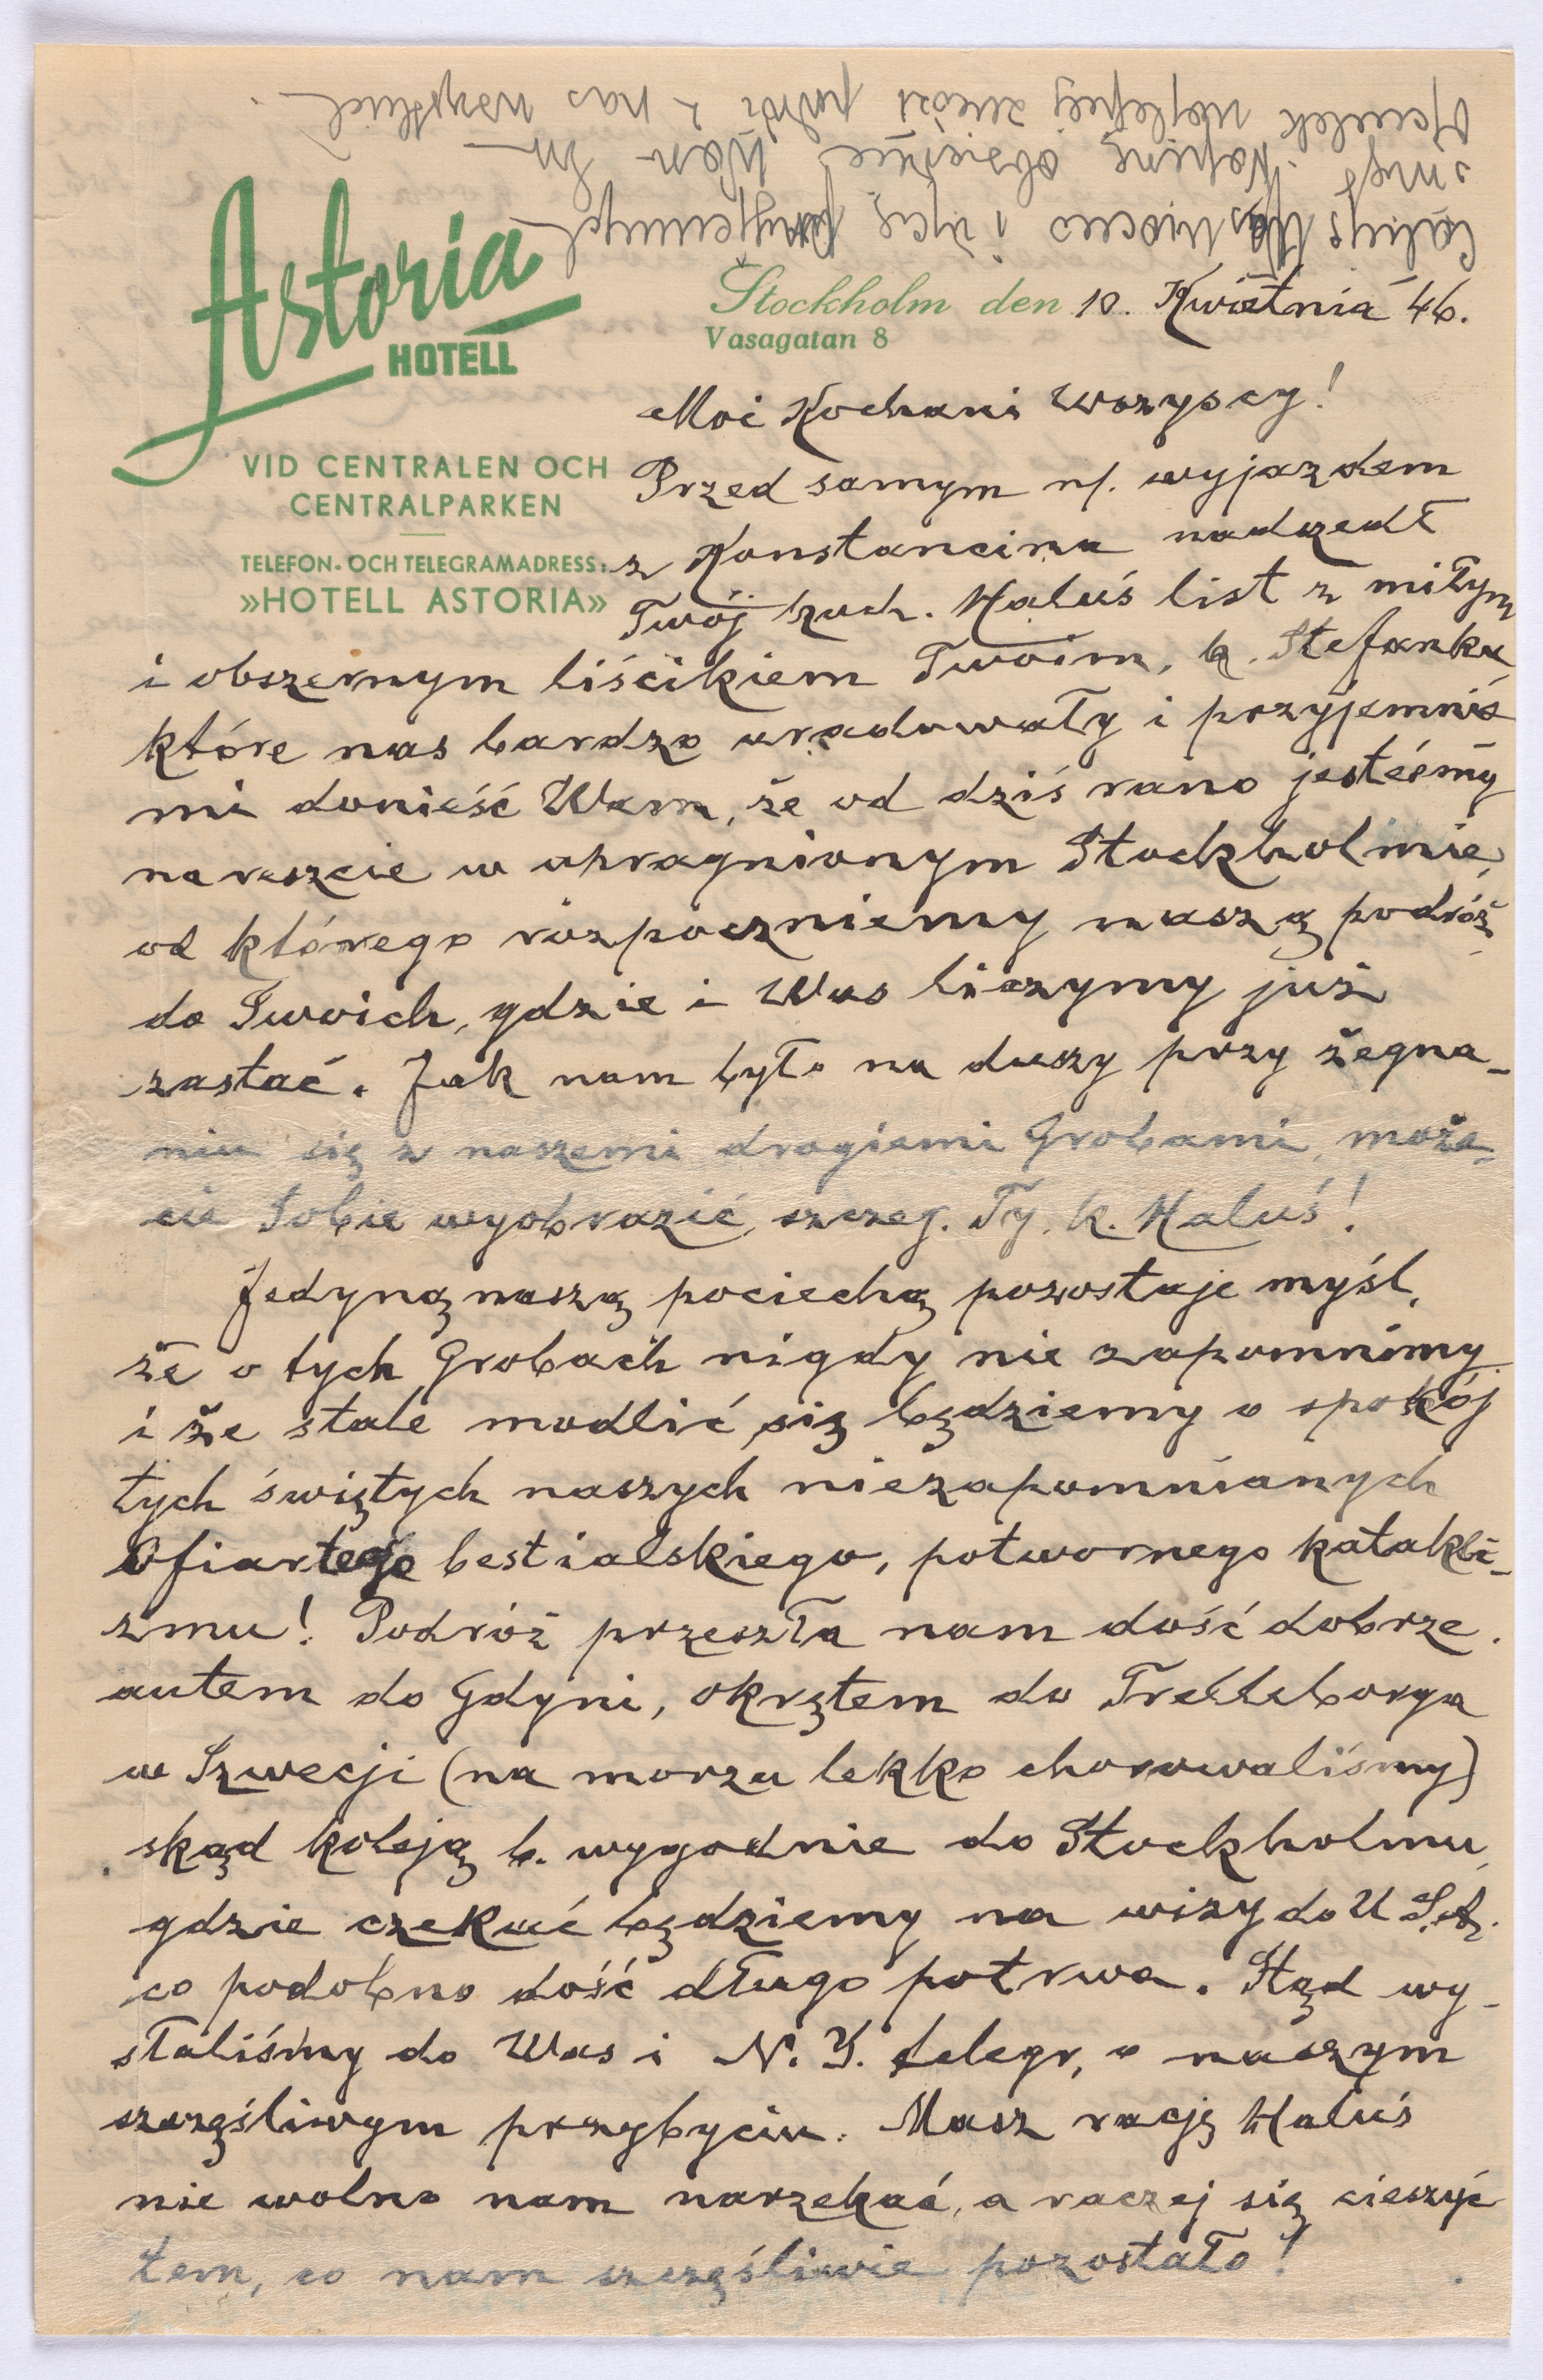 Astoria
HOTELL
VID CENTRALEN OCH
CENTRALPARKEN
TELEFON- OCH TELEGRAMADRESS:
»HOTELL ASTORIA»
Stockholm den 10. Kwietnia 46.
Vasagatan 8
Moi Kochani Wszyscy!
Przed samym n/. wyjazdem
z Konstancina nadszedł
Twój koch. Haluś list z miłym
i obszernym liścikiem Twoim, k. Stefanku,
które nas bardzo uradowały i przyjemnie
mi donieść Wam, że od dziś rano jesteśmy
nareszcie w upragnionym Stockholmie,
od którego rozpoczniemy naszą podróż
do Swoich, gdzie i Was liczymy już
zastać. Jak nam było na duszy przy żegna-
niu się z naszemi drogiemi Grobami, może-
cie Sobie wyobrazić, szczeg. Ty, k. Haluś!
Jedyną naszą pociechą pozostaje myśl,
że o tych Grobach nigdy nie zapomnimy
i że stale modlić się będziemy o spokój
tych świętych naszych niezapomnianych
Ofiar tego bestialskiego, potwornego katakli-
zmu! Podróż przeszła nam dość dobrze.
autem do Gdyni, okrętem do Trelleborga
w Szwecji (na morzu lekko chorowaliśmy)
skąd koleją b. wygodnie do Stockholmu,
gdzie czekać będziemy na wizy do U.S.A.
co podobno dość długo potrwa. Stąd wy-
słaliśmy do Was i N. Y. telegr. o naszym
szczęśliwym przybyciu. Masz rację Haluś
nie wolno nam narzekać, a raczej się cieszyć
tem, co nam szczęśliwie pozostało!
Całuję Was mocno i życzę przyjemnych
świąt. Napiszę obszernie Wam
Heniek najlepiej zniósł podróż z nas wszystkich.